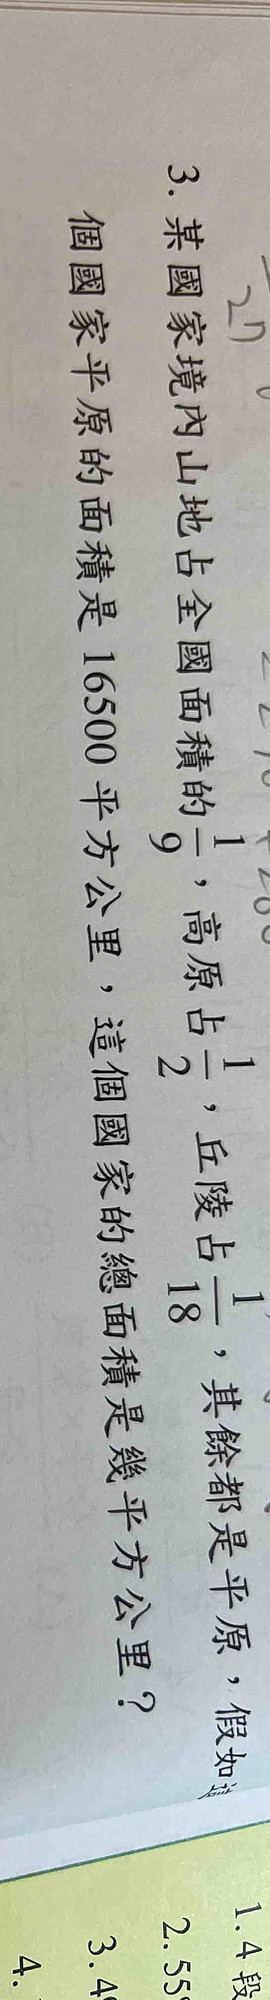 27
3. 某國家境內山地占全國面積的1/9，高原占1/2，丘陵占1/18，其餘都是平原，假如這
個國家平原的面積是16500平方公里，這個國家的總面積是幾平方公里？
1. 4段
2. 55
3. 4
4.